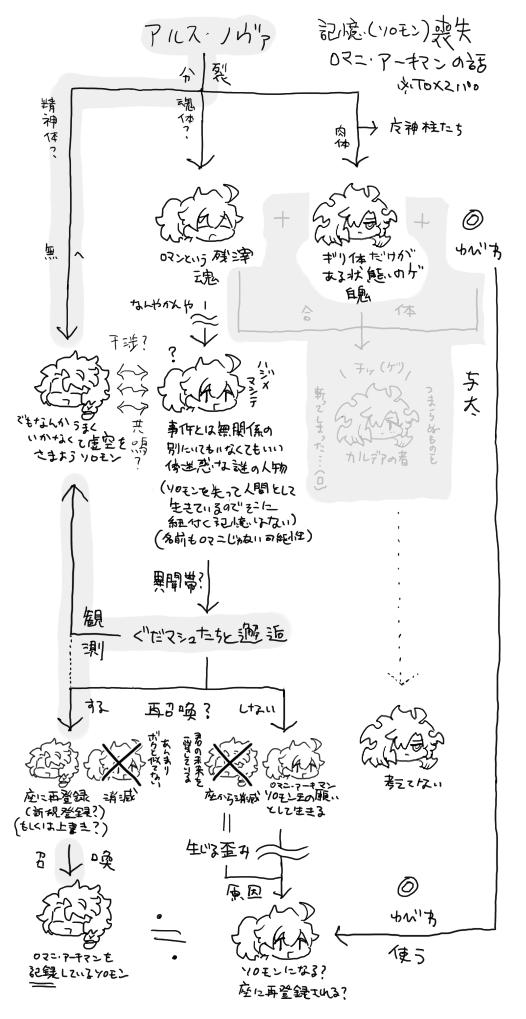 アルス・ノヴァ
記憶(ソロモン)喪失
ロマニ・アーキマンの話
※TOX2パロ
分裂
精神体?
魂体?
肉体
反神柱たち
無へ
ロマンという残滓
魂
ギリ体だけが
ある状態のゲ
自鬼
ゆびわ
合体
なんやかんや
干渉?
共鳴?
?
ハジメマシテ
チッ(ゲリ)
つまらぬものを
斬ってしまった…(ロ)
カルデアの者
与太
でもなんかうまく
いかなくて虚空を
さまようソロモン
事件とは無関係の
別にいてもいなくてもいい
体迷惑な謎の人物
(ソロモンを失って人間として
生きているのでそこに
紐付く記憶はない)
(名前もロマニじゃない可能性)
異聞帯?
観測
ぐだマシュたちと邂逅
する
再召喚?
しない
あんまり
ボクと似てない
君の未来を
祝福している
座に再登録
(新規登録?)
(もしくは上書き?)
消滅
座から消滅
ロマニ・アーキマン
ソロモン王の願い
として生きる
考えてない
召喚
生じる歪み
原因
ゆびわ
使う
ロマニ・アーキマンを
記録しているソロモン
ソロモンになる?
座に再登録される?